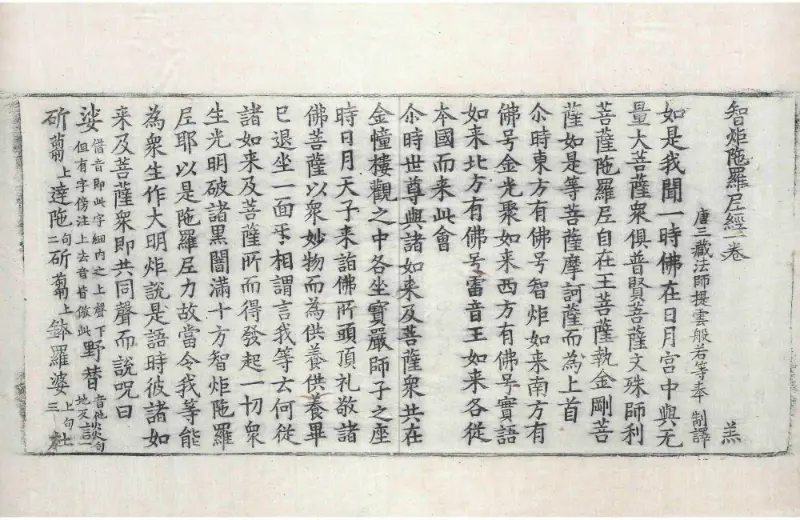 智炬陁羅尼經一卷 羔
唐三藏法師提雲般若等奉 制譯
如是我聞一時佛在日月宫中與无
量大菩薩衆俱普賢菩薩文殊師利
菩薩陁羅尼自在王菩薩執金剛菩
薩如是等菩薩摩訶薩而為上首
尒時東方有佛号智炬如来南方有
佛号金光聚如来西方有佛号實語
如来北方有佛号雷音王如来各從
本國而来此會
尒時世尊與諸如来及菩薩衆共在
金幢樓觀之中各坐寳嚴師子之座
時日月天子来詣佛所頭頂礼敬諸
佛菩薩以衆妙物而為供養供養畢
已退坐一面𠀳相謂言我等云何從
諸如来及菩薩所而得發起一切衆
生光明破諸黑闇滿十方智炬陁羅
尼耶以是陁羅尼力故當令我等能
為衆生作大明炬說是語時彼諸如
来及菩薩衆即共同聲而說呪曰
娑借音即此字細内之上聲下但有字傍注上去音皆倣此野替音他淡句地夜
斫蒭上達陁二句斫蒭上鉢羅婆三杜